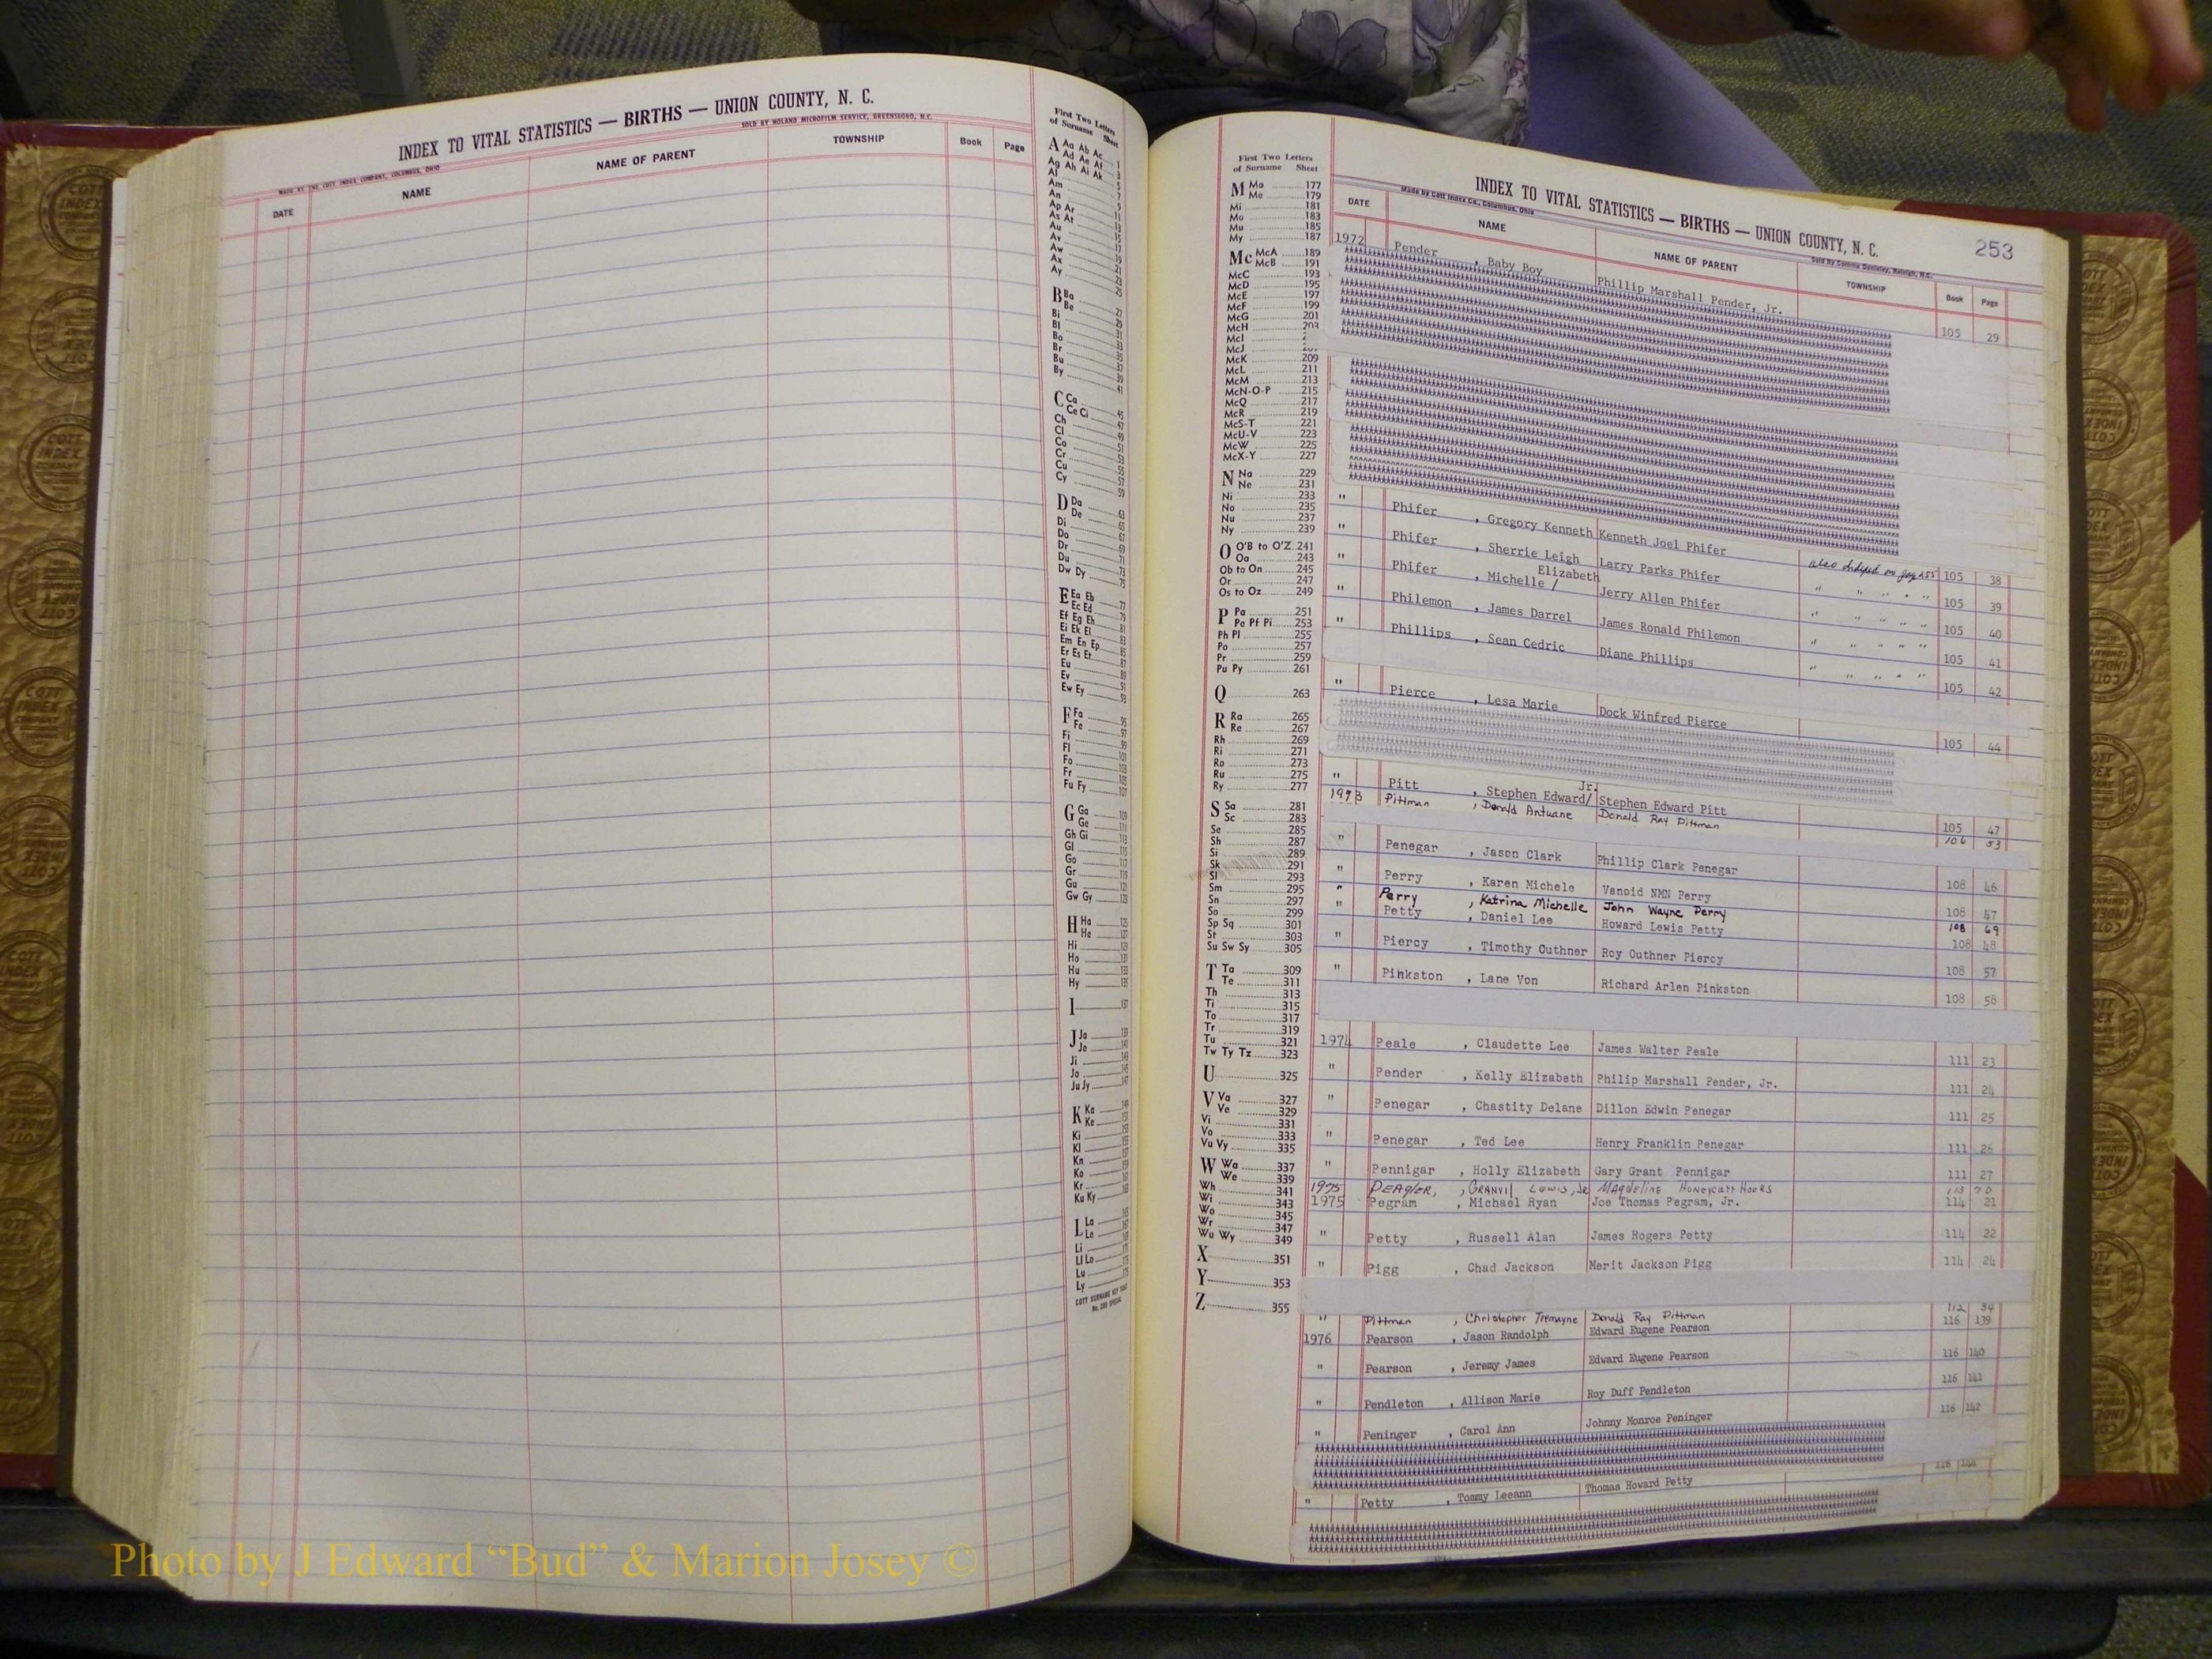 INDEX TO VITAL STATISTICS — BIRTHS — UNION COUNTY, N. C.
MADE BY THE COTT INDEX COMPANY, COLUMBUS, OHIO
SOLD BY NOLAND MICROFILM SERVICE, GREENSBORO, N.C.
DATE NAME NAME OF PARENT TOWNSHIP Book Page
First Two Letters
of Surname Sheet
A Aa Ab Ac 1
Ad Ae Af 3
Ag Ah Ai Ak 5
Al
Am
An
Ap Ar
As At
Au
Av
Aw
Ax
Ay
B Ba
Be
Bi
Bl
Bo
Br
Bu
By
C Ca
Ce Ci
Ch
Cl
Co
Cr
Cu
Cy
D Da
De
Di
Do
Dr
Du
Dw Dy
E Ea Eb
Ec Ed
Ef Eg Eh
Ei Ek El
Em En Ep
Er Es Et
Eu
Ev
Ew Ey
F Fa
Fe
Fi
Fl
Fo
Fr
Fu Fy
G Ga
Ge
Gh Gi
Gl
Go
Gr
Gu
Gw Gy
H Ha
He
Hi
Ho
Hu
Hy
I
J Ja
Je
Ji
Jo
Ju Jy
K Ka
Ke
Ki
Kl
Kn
Ko
Kr
Ku Ky
L La
Le
Li
Ll Lo
Lu
Ly
First Two Letters
of Surname Sheet
M Ma 177
Me 179
Mi 181
Mo 183
Mu 185
My 187
Mc McA 189
McB 191
McC 193
McD 195
McE 197
McF 199
McG 201
McH 203
McI
McJ
McK 209
McL 211
McM 213
McN-O-P 215
McQ 217
McR 219
McS-T 221
McU-V 223
McW 225
McX-Y 227
N Na 229
Ne 231
Ni 233
No 235
Nu 237
Ny 239
O O'B to O'Z 241
Oa 243
Ob to On 245
Or 247
Os to Oz 249
P Pa 251
Pe Pf Pi 253
Ph Pl 255
Po 257
Pr 259
Pu Py 261
Q 263
R Ra 265
Re 267
Rh 269
Ri 271
Ro 273
Ru 275
Ry 277
S Sa 281
Sc 283
Se 285
Sh 287
Si 289
Sk 291
Sl 293
Sm 295
Sn 297
So 299
Sp Sq 301
St 303
Su Sw Sy 305
T Ta 309
Te 311
Th 313
Ti 315
To 317
Tr 319
Tu 321
Tw Ty Tz 323
U 325
V Va 327
Ve 329
Vi 331
Vo 333
Vu Vy 335
W Wa 337
We 339
Wh 341
Wi 343
Wo 345
Wr 347
Wu Wy 349
X 351
Y 353
Z 355
INDEX TO VITAL STATISTICS — BIRTHS — UNION COUNTY, N. C. 253
Made by Cott Index Co., Columbus, Ohio
DATE NAME NAME OF PARENT TOWNSHIP Book Page
1972 Pender , Baby Boy Phillip Marshall Pender, Jr. 105 29
" Phifer , Gregory Kenneth Kenneth Joel Phifer also Indexed on 105 38
" Phifer , Sherrie Leigh Larry Parks Phifer " " " " " 105 39
" Phifer , Michelle / Elizabeth Jerry Allen Phifer " " " " " 105 40
" Philemon , James Darrel James Ronald Philemon " " " " " 105 41
" Phillips , Sean Cedric Diane Phillips " " " " " 105 42
" Pierce , Lesa Marie Dock Winfred Pierce 105 44
" Pitt , Stephen Edward/ Jr. Stephen Edward Pitt 105 47
1973 Pittman , Donald Antuane Donald Ray Pittman 106 53
" Penegar , Jason Clark Phillip Clark Penegar 108 46
" Perry , Karen Michele Vanoid NMN Perry 108 47
" Perry , Katrina Michelle John Wayne Perry 108 69
" Petty , Daniel Lee Howard Lewis Petty 108 48
" Piercy , Timothy Outhner Roy Outhner Piercy 108 57
" Pinkston , Lane Von Richard Arlen Pinkston 108 58
1974 Peale , Claudette Lee James Walter Peale 111 23
" Pender , Kelly Elizabeth Philip Marshall Pender, Jr. 111 24
" Penegar , Chastity Delane Dillon Edwin Penegar 111 25
" Penegar , Ted Lee Henry Franklin Penegar 111 26
" Pennigar , Holly Elizabeth Gary Grant Pennigar 111 27
1975 PEAGLER, , GRANVIL LEWIS, JR MAGDELINE HONEYCUTT HOOKS 113 70
1975 Pegram , Michael Ryan Joe Thomas Pegram, Jr. 114 21
" Petty , Russell Alan James Rogers Petty 114 22
" Pigg , Chad Jackson Merit Jackson Pigg 114 24
" Pittman , Christopher Tremayne Donald Ray Pittman 112 34
1976 Pearson , Jason Randolph Edward Eugene Pearson 116 139
" Pearson , Jeremy James Edward Eugene Pearson 116 140
" Pendleton , Allison Marie Roy Duff Pendleton 116 141
" Peninger , Carol Ann Johnny Monroe Peninger 116 142
" Petty , Tommy Leeann Thomas Howard Petty 116 144
Photo by J Edward “Bud” & Marion Josey ©